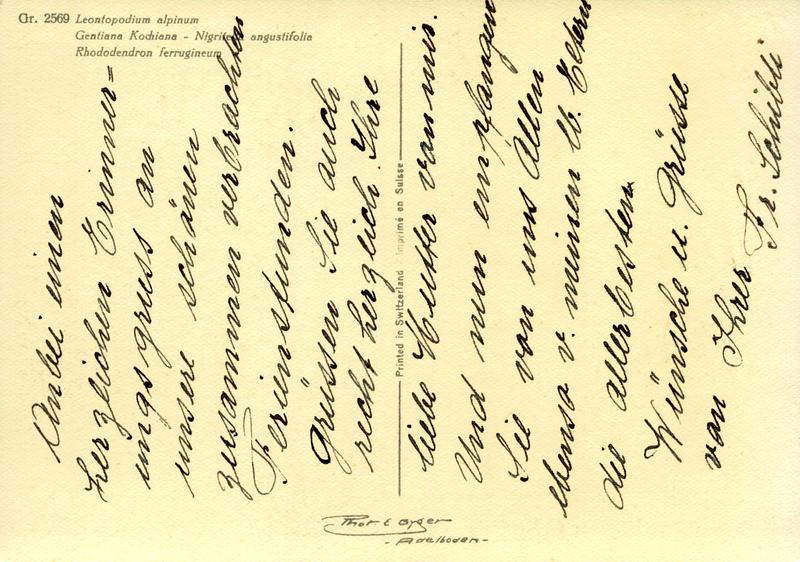 Gr. 2569 Leontopodium alpinum
Gentiana Kochiana - Nigritella angustifolia
Rhododendron ferrugineum
Anbei einen
herzlichen Erinner=
ungsgruss an
unsere schönen
zusammen verbrachten
Ferienstunden.
Grüssen Sie auch
recht herzlich Ihre
Printed in Switzerland - Imprimé en Suisse
liebe Mutter von mir.
Und nun empfangen
Sie von uns Allen
ebenso v. meinen lb. Eltern
die allerbesten
Wünsche u. Grüsse
von Ihrer Fr. Schibli
Phot E Gyger
- Adelboden -